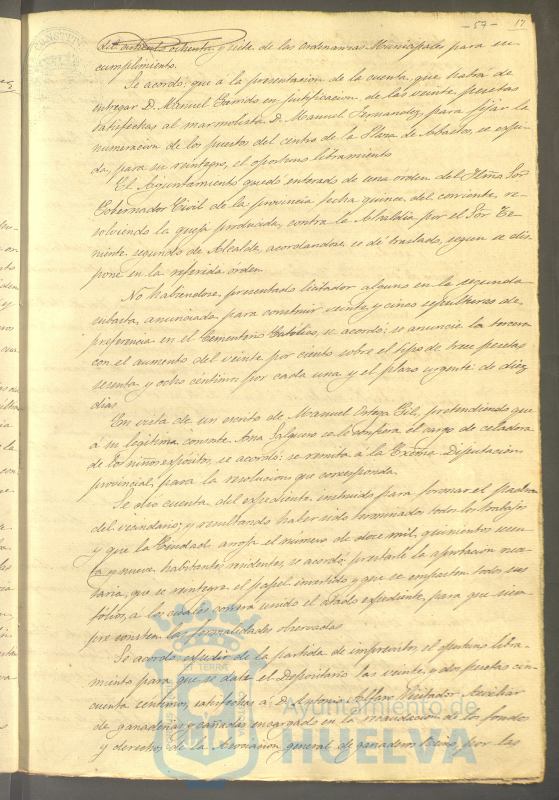 - 57 -
17
y siete de las Ordenanzas Municipales para su
cumplimiento.
Se acordó: que á la presentacion de la cuenta, que habrá de
entregar D. Manuel Garrido en justificacion de las veinte pesetas
satisfechas al marmolista D. Manuel Fernandez, para fijar la
numeracion de los puestos del centro de la Plaza de Abastos, se expi-
da, para su reintegro, el oportuno libramiento.
El Ayuntamiento quedó enterado de una orden del Iltmo. Sor.
Gobernador Civil de la provincia fecha quince del corriente, re-
solviendo la queja producida, contra la Alcaldia por el Sor. Te-
niente segundo de Alcalde, acordandose se dé traslado, segun se dis-
pone en la referida orden.
No habiendose presentado licitador alguno en la segunda
subasta, anunciada para construir veinte y cinco sepulturas de
preferencia en el Cementerio Católico, se acordó: se anuncie la tercera
con el aumento del veinte por ciento sobre el tipo de trece pesetas
sesenta y ocho centimos por cada una y el plazo urgente de diez
dias.
En vista de un escrito de Manuel Ortega Gil, pretendiendo que
á su legitima consorte Ana Salguero se le confiera el cargo de celadora
de los niños expósitos, se acordó: se remita á la Excma. Diputacion
provincial, para la resolucion que corresponda.
Se dió cuenta del expediente instruido para formar el padron
del vecindario; y resultando haber sido terminados todos los trabajos
y que la Ciudad arroja el número de doce mil, quinientos
y nueve habitantes residentes, se acordó: prestarle la aprobacion
que se reintegre el papel invertido y que se empasten todos sus
fólios, á los cuales correra unido el citado expediente, para que siem-
pre consten las formalidades observadas.
Se acordó expedir de la partida de imprevistos el oportuno libra-
miento para que se date el Depositario las veinte y dos pesetas cin-
cuenta centimos, satisfechas á D. Antonio Alfaro Visitador Auxiliar
de ganaderias y cañadas encargado en la recaudacion de los fondos
y derechos de la Asociacion general de ganaderos del Reino, por las
Ayuntamiento de
HUELVA